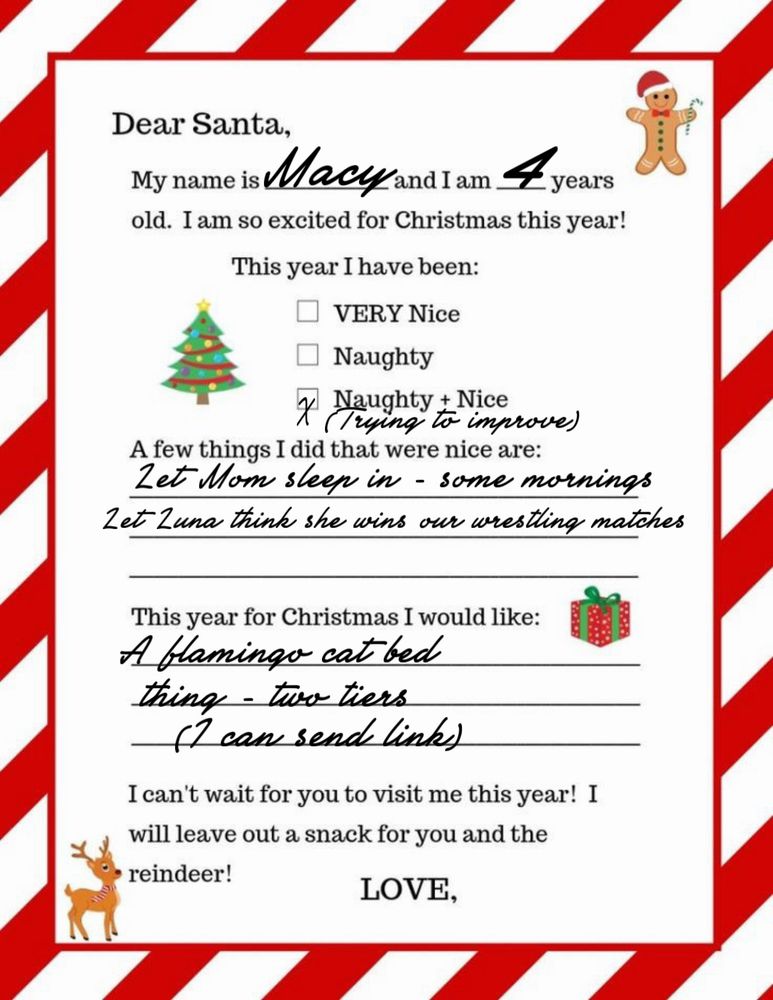 Dear Santa,
My name is Macy and I am 4 years
old. I am so excited for Christmas this year!
This year I have been:
VERY Nice
Naughty
X Naughty + Nice
(Trying to improve)
A few things I did that were nice are:
Let Mom sleep in - some mornings
Let Luna think she wins our wrestling matches
This year for Christmas I would like:
A flamingo cat bed
thing - two tiers
(I can send link)
I can't wait for you to visit me this year! I
will leave out a snack for you and the
reindeer!
LOVE,